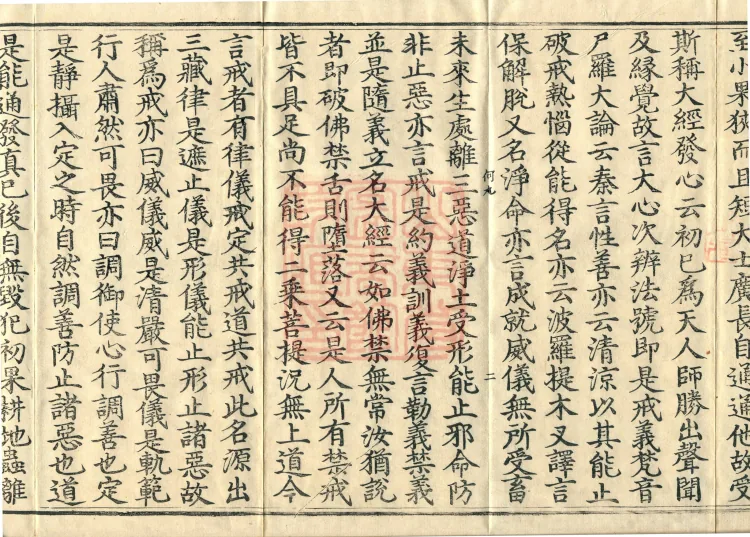 至小果狹而且短大士廣長自通通他故受
斯稱大經發心云初已為天人師勝出聲聞
及緣覺故言大心次辨法號即是戒義梵音
尸羅大論云秦言性善亦云清涼以其能止
破戒熱惱從能得名亦云波羅提木又譯言
保解脫又名淨命亦言成就威儀無所受畜
未來生處離三惡道淨土受形能止邪命防
非止惡亦言戒是約義訓義復言勒義禁義
並是隨義立名大經云如佛禁無常汝猶說
者即破佛禁舌則墮落又云是人所有禁戒
皆不具足尚不能得二乘菩提況無上道今
言戒者有律儀戒定共戒道共戒此名源出
三藏律是遮止儀是形儀能止形止諸惡故
稱為戒亦曰威儀威是清嚴可畏儀是軌範
行人肅然可畏亦曰調御使心行調善也定
是靜攝入定之時自然調善防止諸惡也道
是能通發真已後自無毀犯初果耕地蟲離